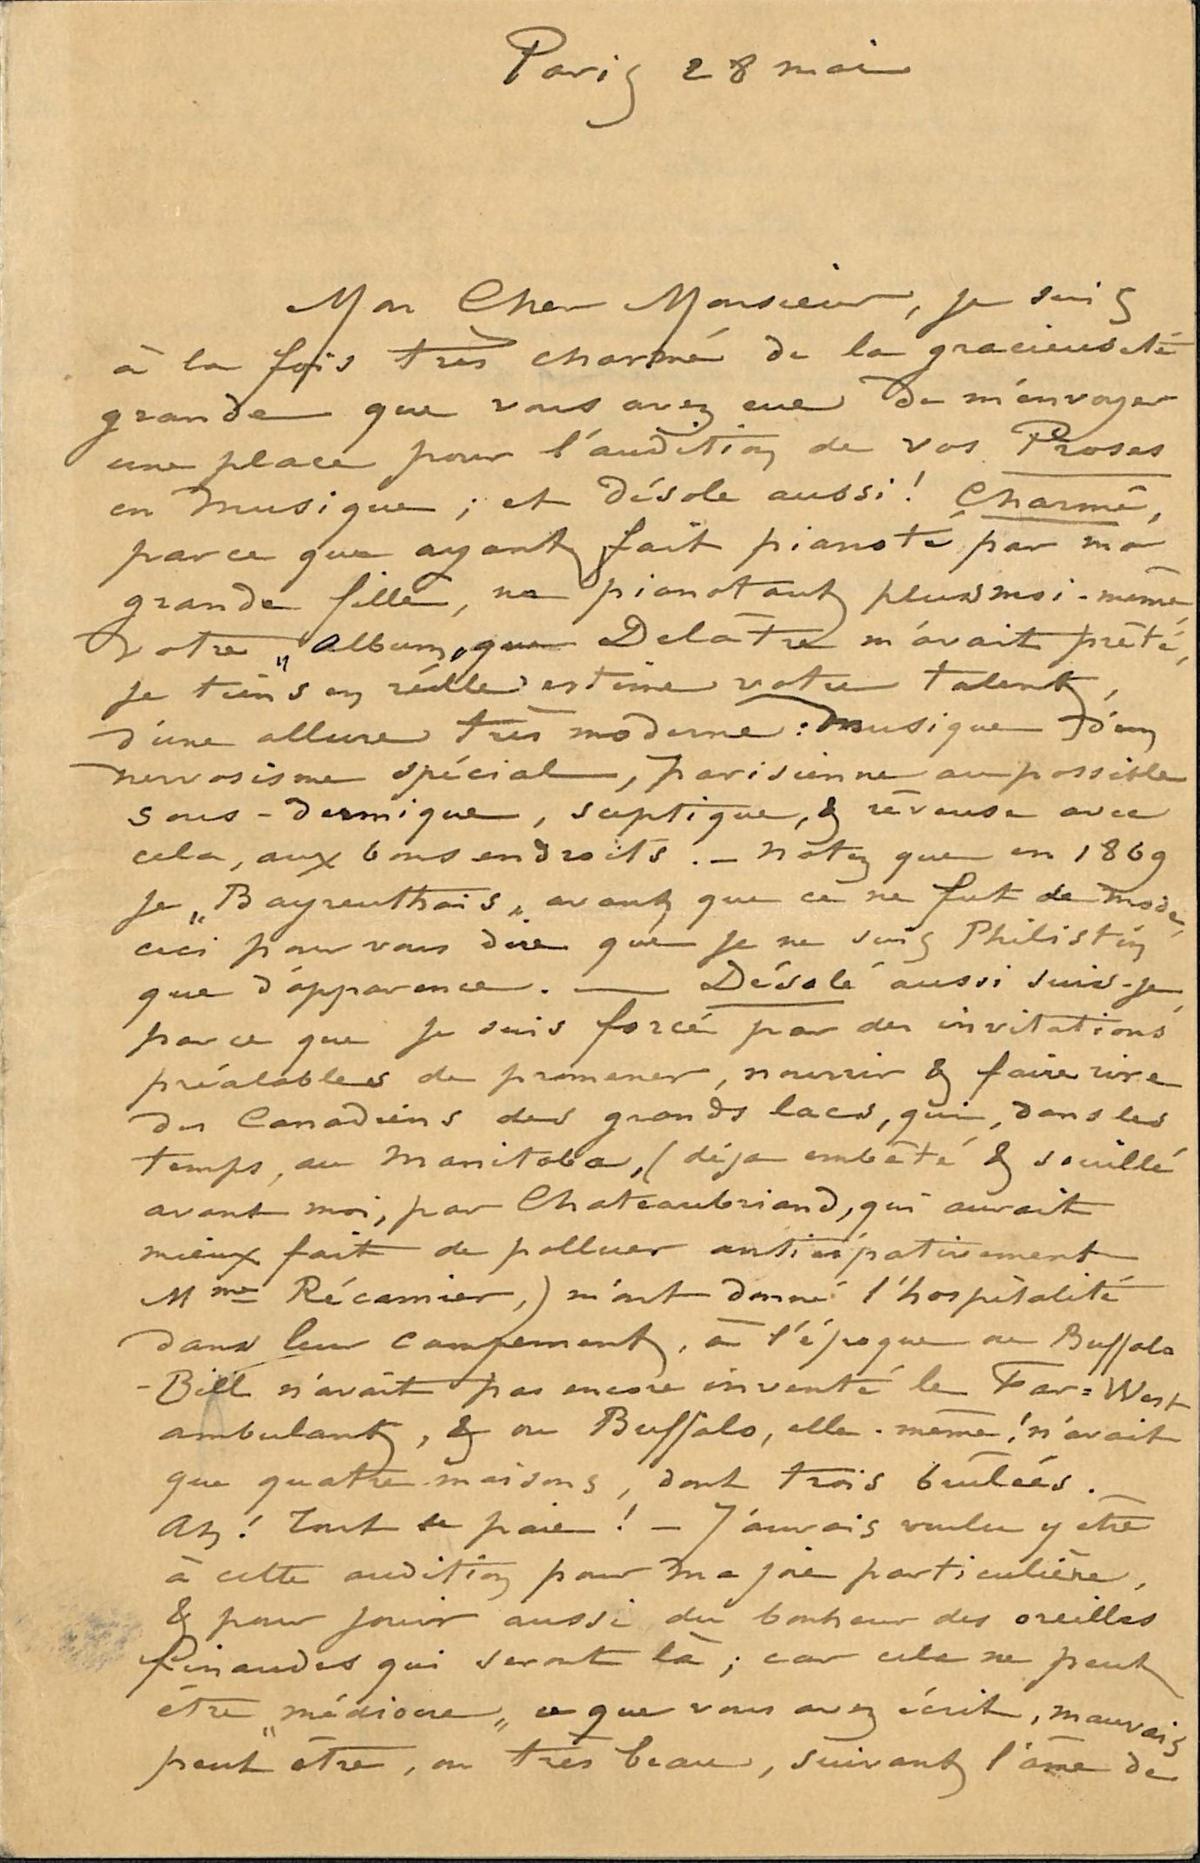 Paris 28 mai
Mon Cher Monsieur, je suis
à la fois très charmé de la gracieuseté
grande que vous avez eue de m'envoyer
une place pour l'audition de vos Proses
en Musique ; et désolé aussi ! Charmé,
parce que ayant fait pianoté par ma
grande fille, ne pianotant plus moi-même,
Votre „Album„ que Delâtre m'avait prêté,
je tiens en réelle estime votre talent,
d'une allure très moderne : musique d'un
nervosisme spécial, parisienne au possible
sous-dermique, sceptique, & rêveuse avec
cela, aux bons endroits. — Notez que en 1869
je „Bayreuthais„ avant que ce ne fut de mode,
ceci pour vous dire que je ne suis Philistin
que d'apparence. — Désolé aussi suis-je,
parce que je suis forcé par des invitations
préalables de promener, nourrir & faire rire
des Canadiens des grands lacs, qui, dans les
temps, au Manitoba, (déja embêté & souillé
avant moi, par Chateaubriand, qui aurait
mieux fait de polluer anticipativement
Mme Récamier,) m'ont donné l'hospitalité
dans leur campement, à l'époque ou Buffalo
-Bill n'avait pas encore inventé le Far=West
ambulant, & ou Buffalo, elle-même ! n'avait
que quatre maisons, dont trois brûlées.
Ah ! Tout se paie ! — J'aurais voulu y être
à cette audition pour ma joie particulière,
& pour jouir aussi du bonheur des oreilles
finaudes qui seront là ; car cela ne peut
être „médiocre„ ce que vous avez écrit, mauvais
peut être, ou très beau, suivant l'âme de